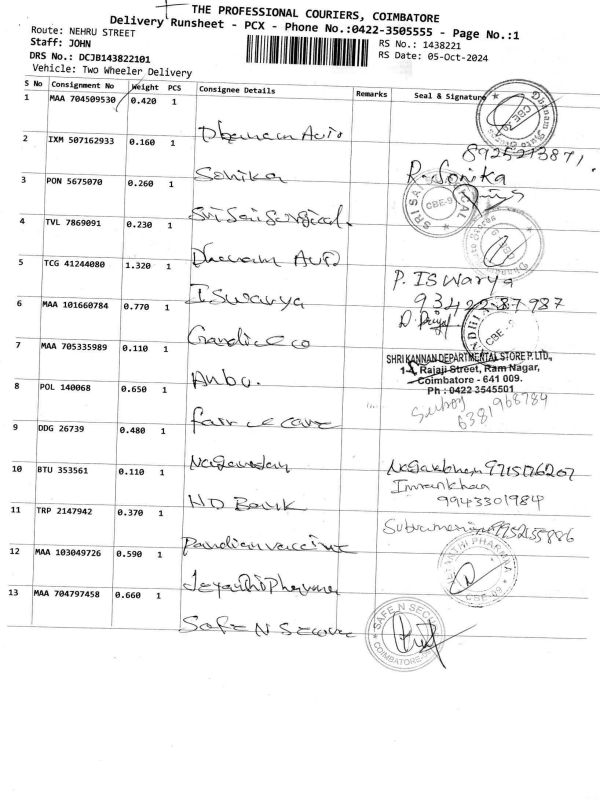 THE PROFESSIONAL COURIERS, COIMBATORE
Delivery Runsheet - PCX - Phone No.:0422-3505555 - Page No.:1
Route: NEHRU STREET
Staff: JOHN
DRS No.: DCJB143822101
Vehicle: Two Wheeler Delivery
RS No.: 1438221
RS Date: 05-Oct-2024
S No Consignment No Weight PCS Consignee Details Remarks Seal & Signature
1 MAA 704509530 0.420 1
Auto
8925213871
2 IXM 507162933 0.160 1
Sonika
R. Sonika
3 PON 5675070 0.260 1
Sri Sai Surgical
SRI SAI
CBE-9
4 TVL 7869091 0.230 1
Auto
5 TCG 41244080 1.320 1
ISwarya
P. ISwarya
93422 87987
6 MAA 101660784 0.770 1
CBE-9
7 MAA 705335989 0.110 1
Anbu.
SHRI KANNAN DEPARTMENTAL STORE P. LTD.,
Rajaji Street, Ram Nagar,
Coimbatore - 641 009.
Ph : 0422 3545501
8 POL 140068 0.650 1
6381968789
9 DDG 26739 0.480 1
10 BTU 353561 0.110 1
HD Bank
Imrankhan
9943301984
11 TRP 2147942 0.370 1
Pandian vaccine
12 MAA 103049726 0.590 1
Jeyanthi Pharma
CBE-09
13 MAA 704797458 0.660 1
Safe N Secure
SAFE N SECURE
COIMBATORE